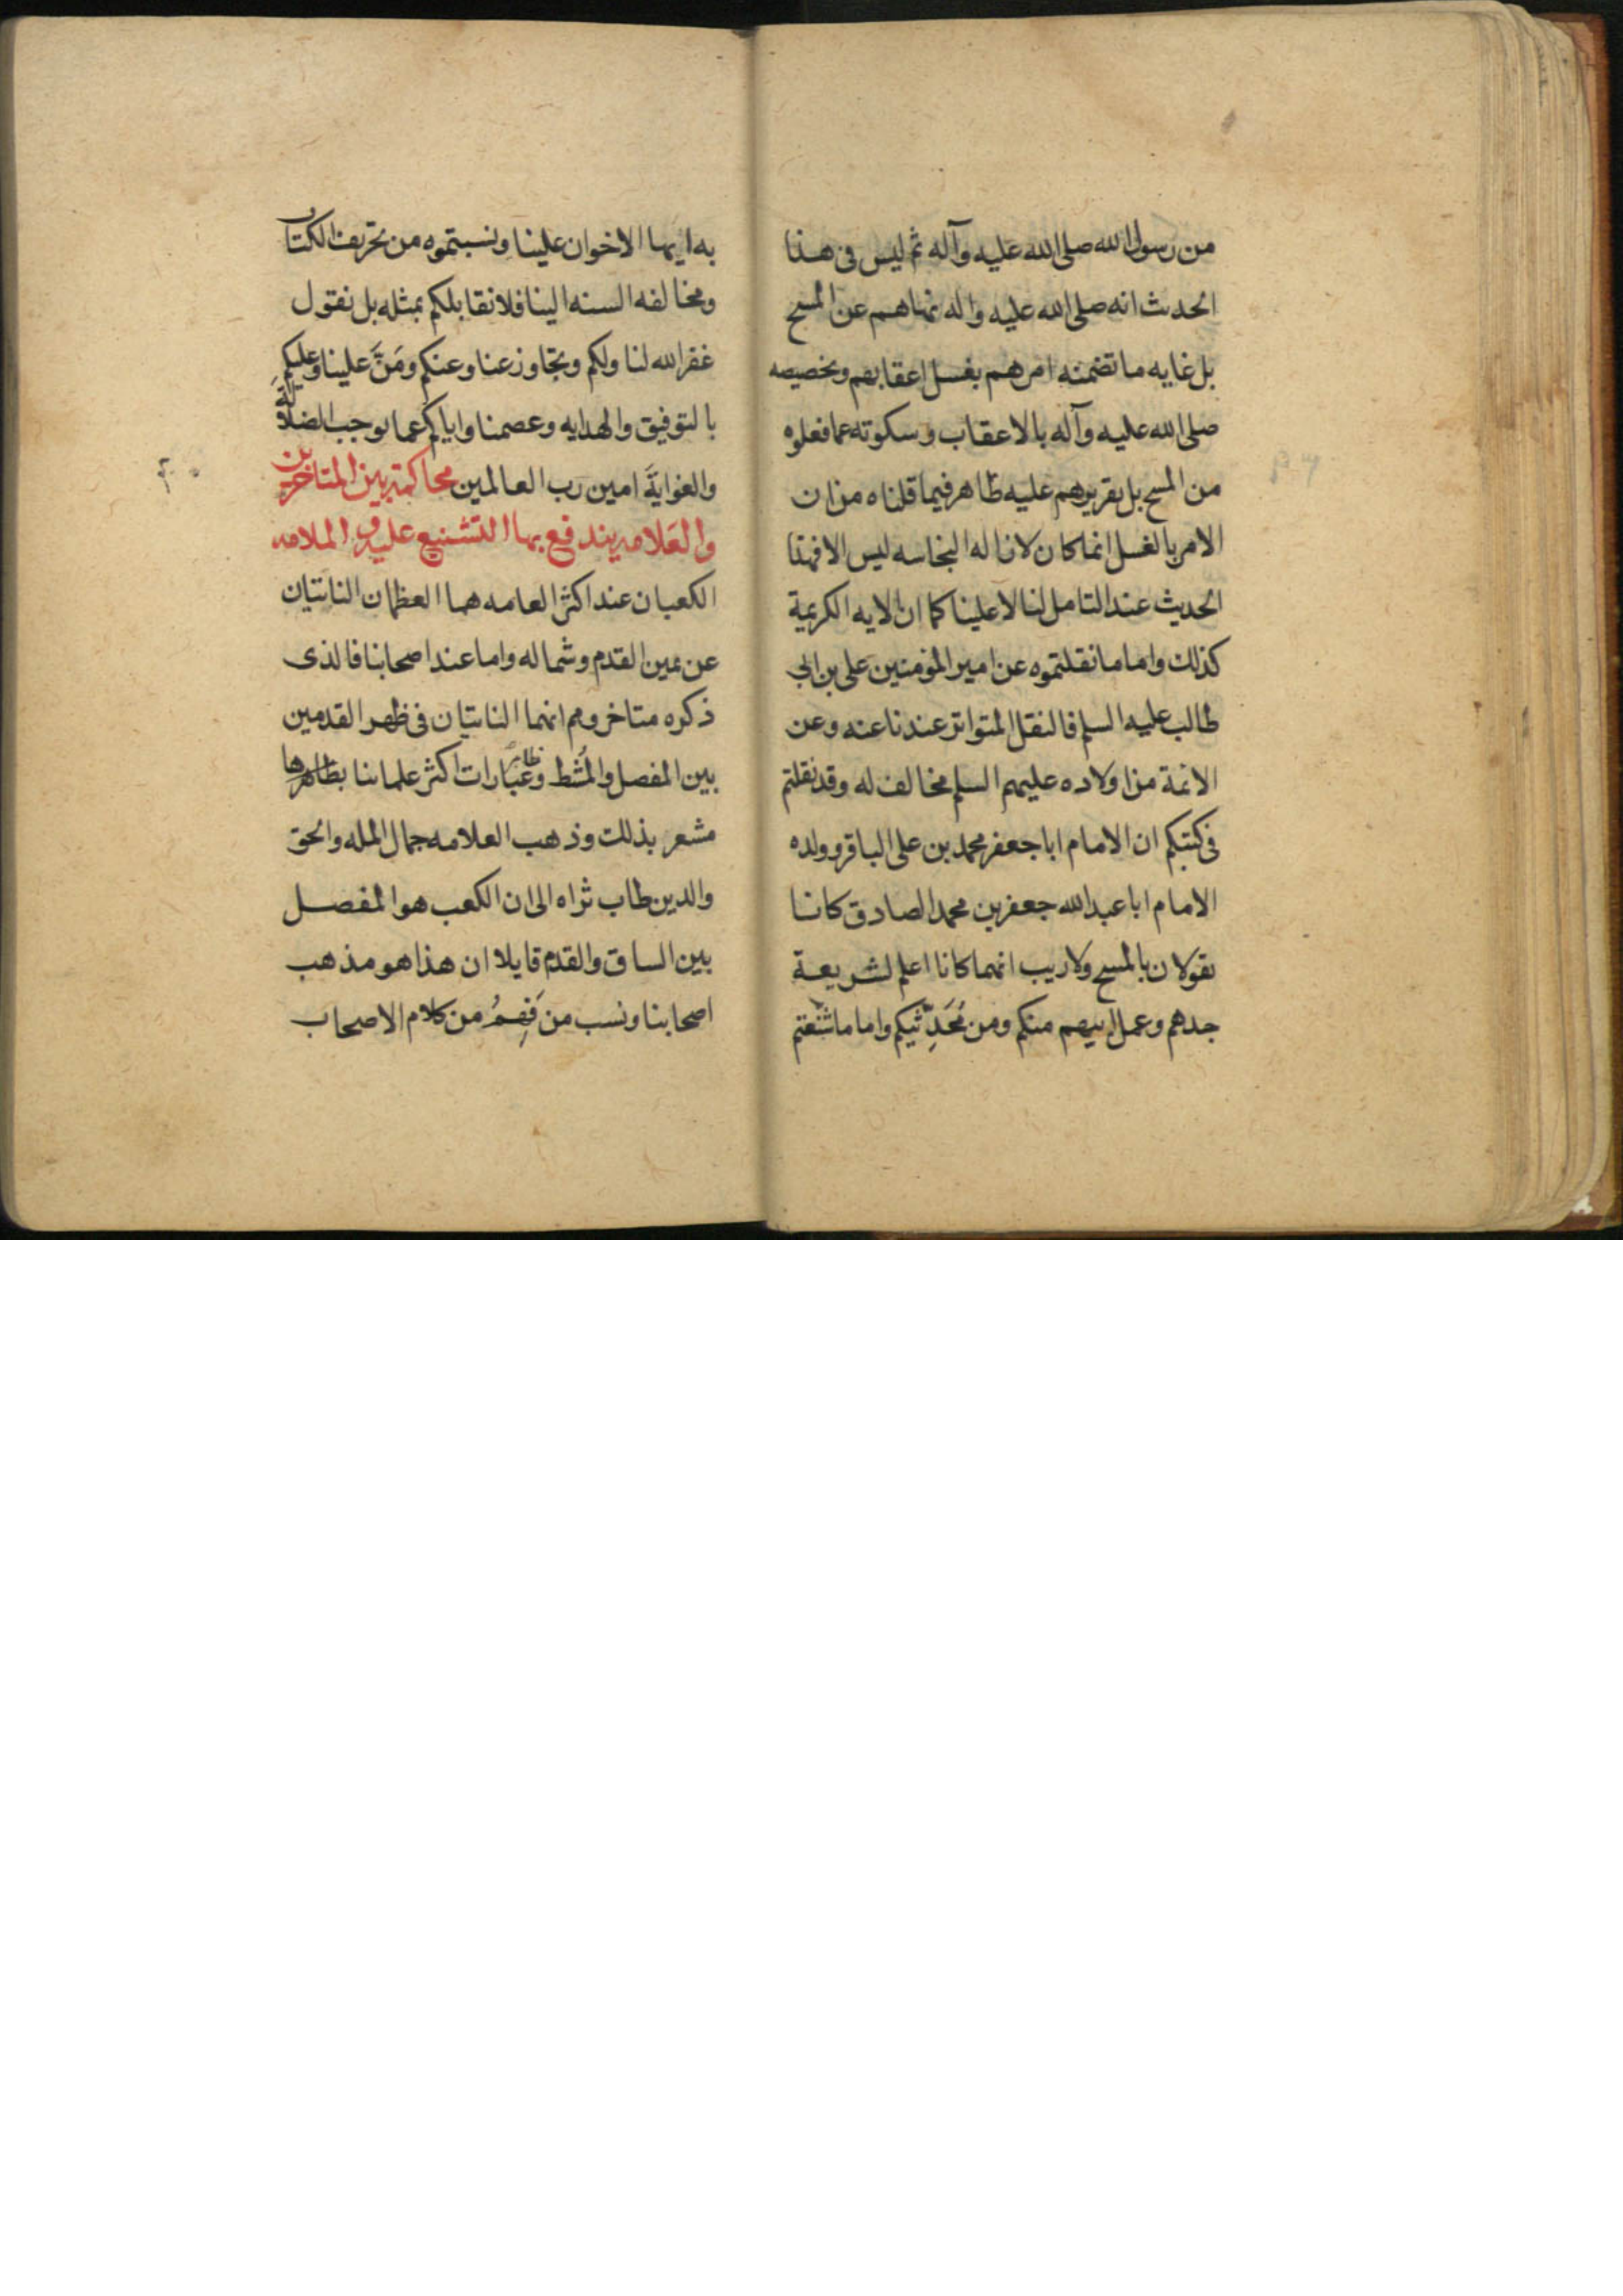 من رسول الله صلى الله عليه وآله ثم ليس فى هذا
الحديث انه صلى الله عليه واله نهاهم عن المسح
بل غايه ما تضمنه امرهم بغسل اعقابهم وتخصيصه
صلى الله عليه وآله بالاعقاب وسكوته عما فعلوه
من المسح بل تقريرهم عليه ظاهر فيما قلناه من ان
الامر بالغسل انما كان لازاله النجاسه ليس الا فهذا
الحديث عند التامل لنا لا علينا كما ان الايه الكريمة
كذلك واما ما نقلتموه عن امير المؤمنين على بن ابى
طالب عليه السلم فالنقل المتواتر عندنا عنه وعن
الائمة من اولاده عليهم السلم مخالف له وقد نقلتم
فى كتبكم ان الامام ابا جعفر محمد بن على الباقر وولده
الامام ابا عبد الله جعفر بن محمد الصادق كانا
يقولان بالمسح ولا ريب انهما كانا اعلم لشريعة
جدهم وعمل ابيهم منكم ومن مُحَدِّثيكم واما ما شنّعتم
به ايها الاخوان علينا ونسبتموه من تحريف الكتاب
ومخالفه السنه الينا فلا نقابلكم بمثله بل نقول
غفر الله لنا ولكم وتجاوز عنا وعنكم ومَنَّ علينا وعليكم
بالتوفيق والهدايه وعصمنا واياكم عما يوجب الضلالَةَ
والغوايةَ امين رب العالمين محاكمة بين المتاخرين
والعَلامه يندفع بها التشنيع عليه و الملامه
الكعبان عند اكثر العامه هما العظمان الناتيان
عن يمين القدم وشماله واما عند اصحابنا فالذى
ذكره متاخروهم انهما الناتيان فى ظهر القدمين
بين المفصل والمُشط وعبارات اكثر علمائنا بظاهرها
مشعر بذلك وذهب العلامه جمال المله والحق
والدين طاب ثراه الى ان الكعب هو المفصل
بين الساق والقدم قايلا ان هذا هو مذهب
اصحابنا ونسب من فَهِمُ من كلام الاصحاب